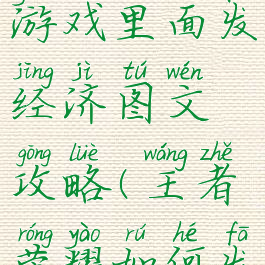 游戏里面发
jīng jì tú wén
经济图文
gōng lüè wáng zhě
攻略(王者
róng yào rú hé fā
荣耀如何发